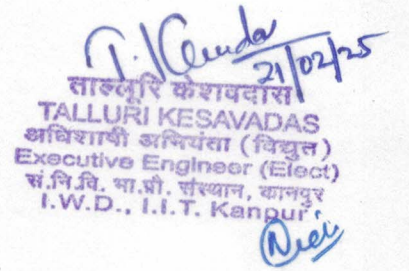 21/02/25
ताल्लूरि केशवदास
TALLURI KESAVADAS
अधिशाषी अभियंता (विद्युत)
Executive Engineer (Elect)
सं.नि.वि. भा.प्रौ. संस्थान, कानपुर
I.W.D., I.I.T. Kanpur